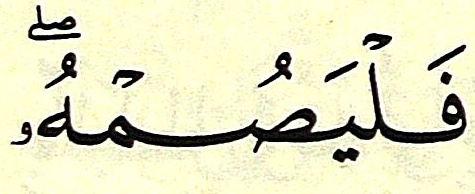 فَلْيَصُمْهُۥۖ